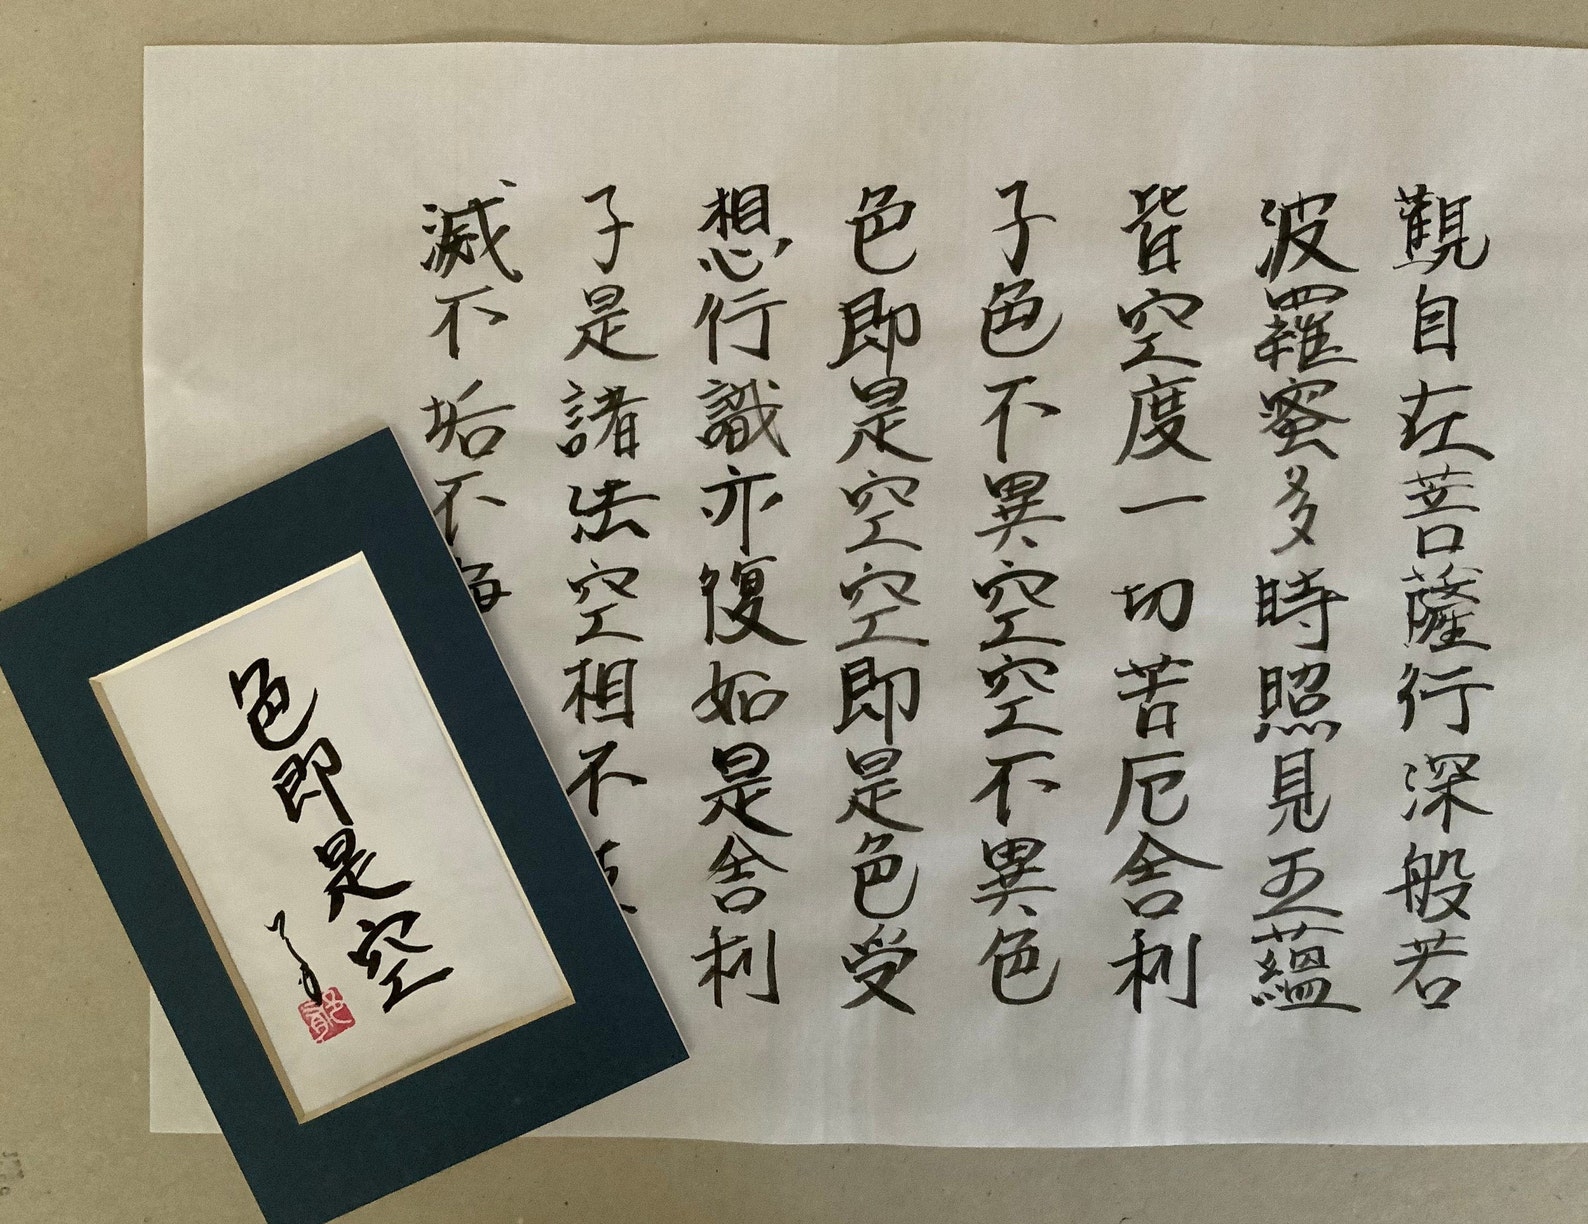 觀自在菩薩行深般若
波羅蜜多時照見五蘊
皆空度一切苦厄舍利
子色不異空空不異色
色即是空空即是色受
想行識亦復如是舍利
子是諸法空相不
滅不垢不
色即是空